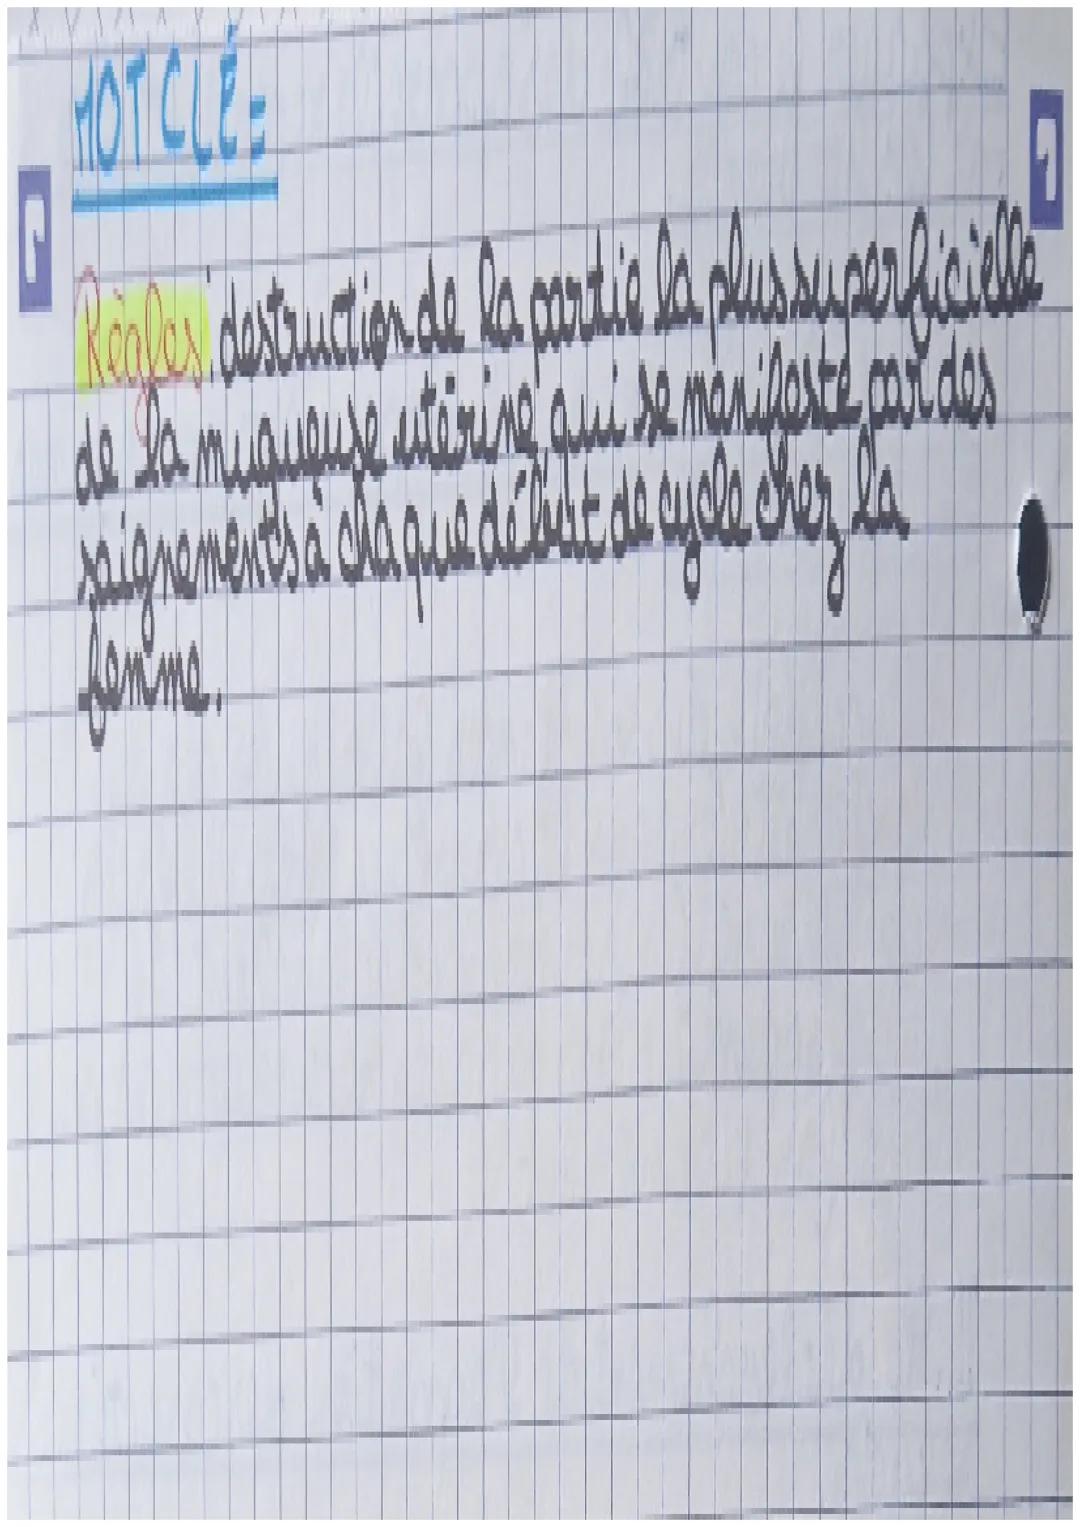 MOT CLÉ =
Règles : destruction de la partie la plus superficielle
de la muqueuse utérine qui se manifeste par des
saignements à chaque début de cycle chez la
femme.